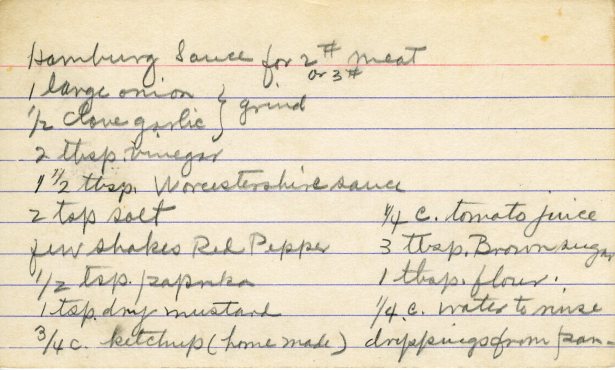 Hamburg Sauce for 2# meat
or 3#
1 large onion } grind
1/2 clove garlic
2 tbsp. vinegar
1 1/2 tbsp. Worcestershire sauce
2 tsp salt
few shakes Red Pepper
1/2 tsp. paprika
1 tsp. dry mustard
3/4 c. ketchup (home made)
1/4 c. tomato juice
3 tbsp. Brown sugar
1 tbsp. flour.
1/4 c. water to rinse
drippings from pan-